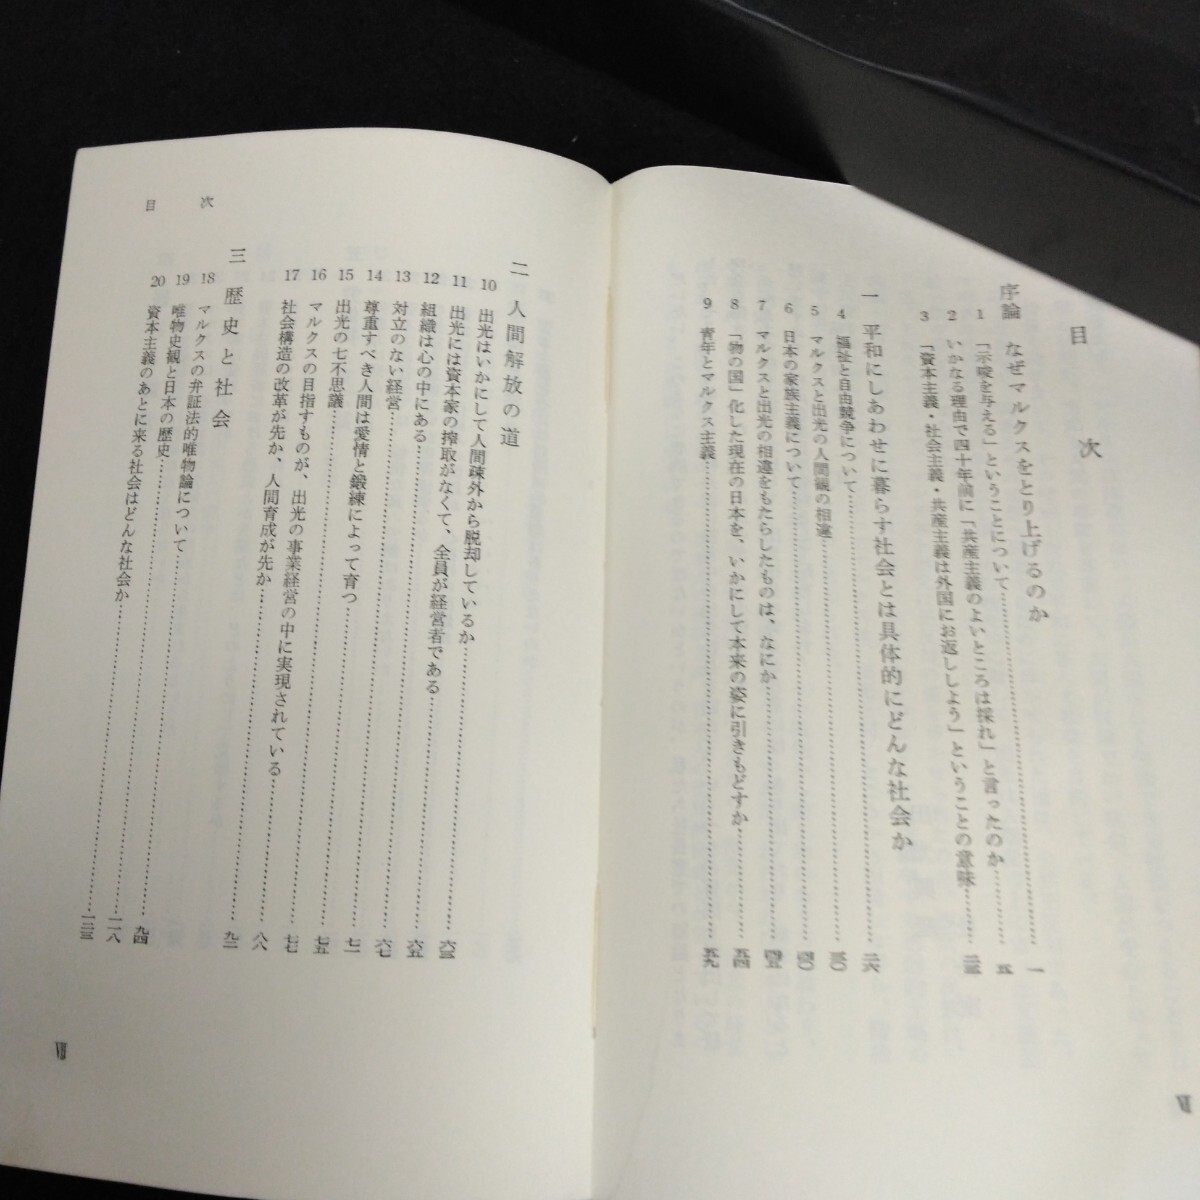 目次
序論 なぜマルクスをとり上げるのか
1 「示唆を与える」ということについて……一
2 いかなる理由で四十年前に「共産主義のよいところは採れ」と言ったのか……五
3 「資本主義・社会主義・共産主義は外国にお返ししよう」ということの意味……二三
一 平和にしあわせに暮らす社会とは具体的にどんな社会か
4 福祉と自由競争について……二六
5 マルクスと出光の人間観の相違……三〇
6 日本の家族主義について……四〇
7 マルクスと出光の相違をもたらしたものは、なにか……四五
8 「物の国」化した現在の日本を、いかにして本来の姿に引きもどすか……五四
9 青年とマルクス主義……五九
Ⅵ
目次
二 人間解放の道
10 出光はいかにして人間疎外から脱却しているか……六三
11 出光には資本家の搾取がなくて、全員が経営者である……六五
12 組織は心の中にある……六七
13 対立のない経営……七一
14 尊重すべき人間は愛情と鍛練によって育つ……七五
15 出光の七不思議……七七
16 マルクスの目指すものが、出光の事業経営の中に実現されている……八八
17 社会構造の改革が先か、人間育成が先か……九一
三 歴史と社会
18 マルクスの弁証法的唯物論について……九四
19 唯物史観と日本の歴史……一一八
20 資本主義のあとに来る社会はどんな社会か……一二三
Ⅶ